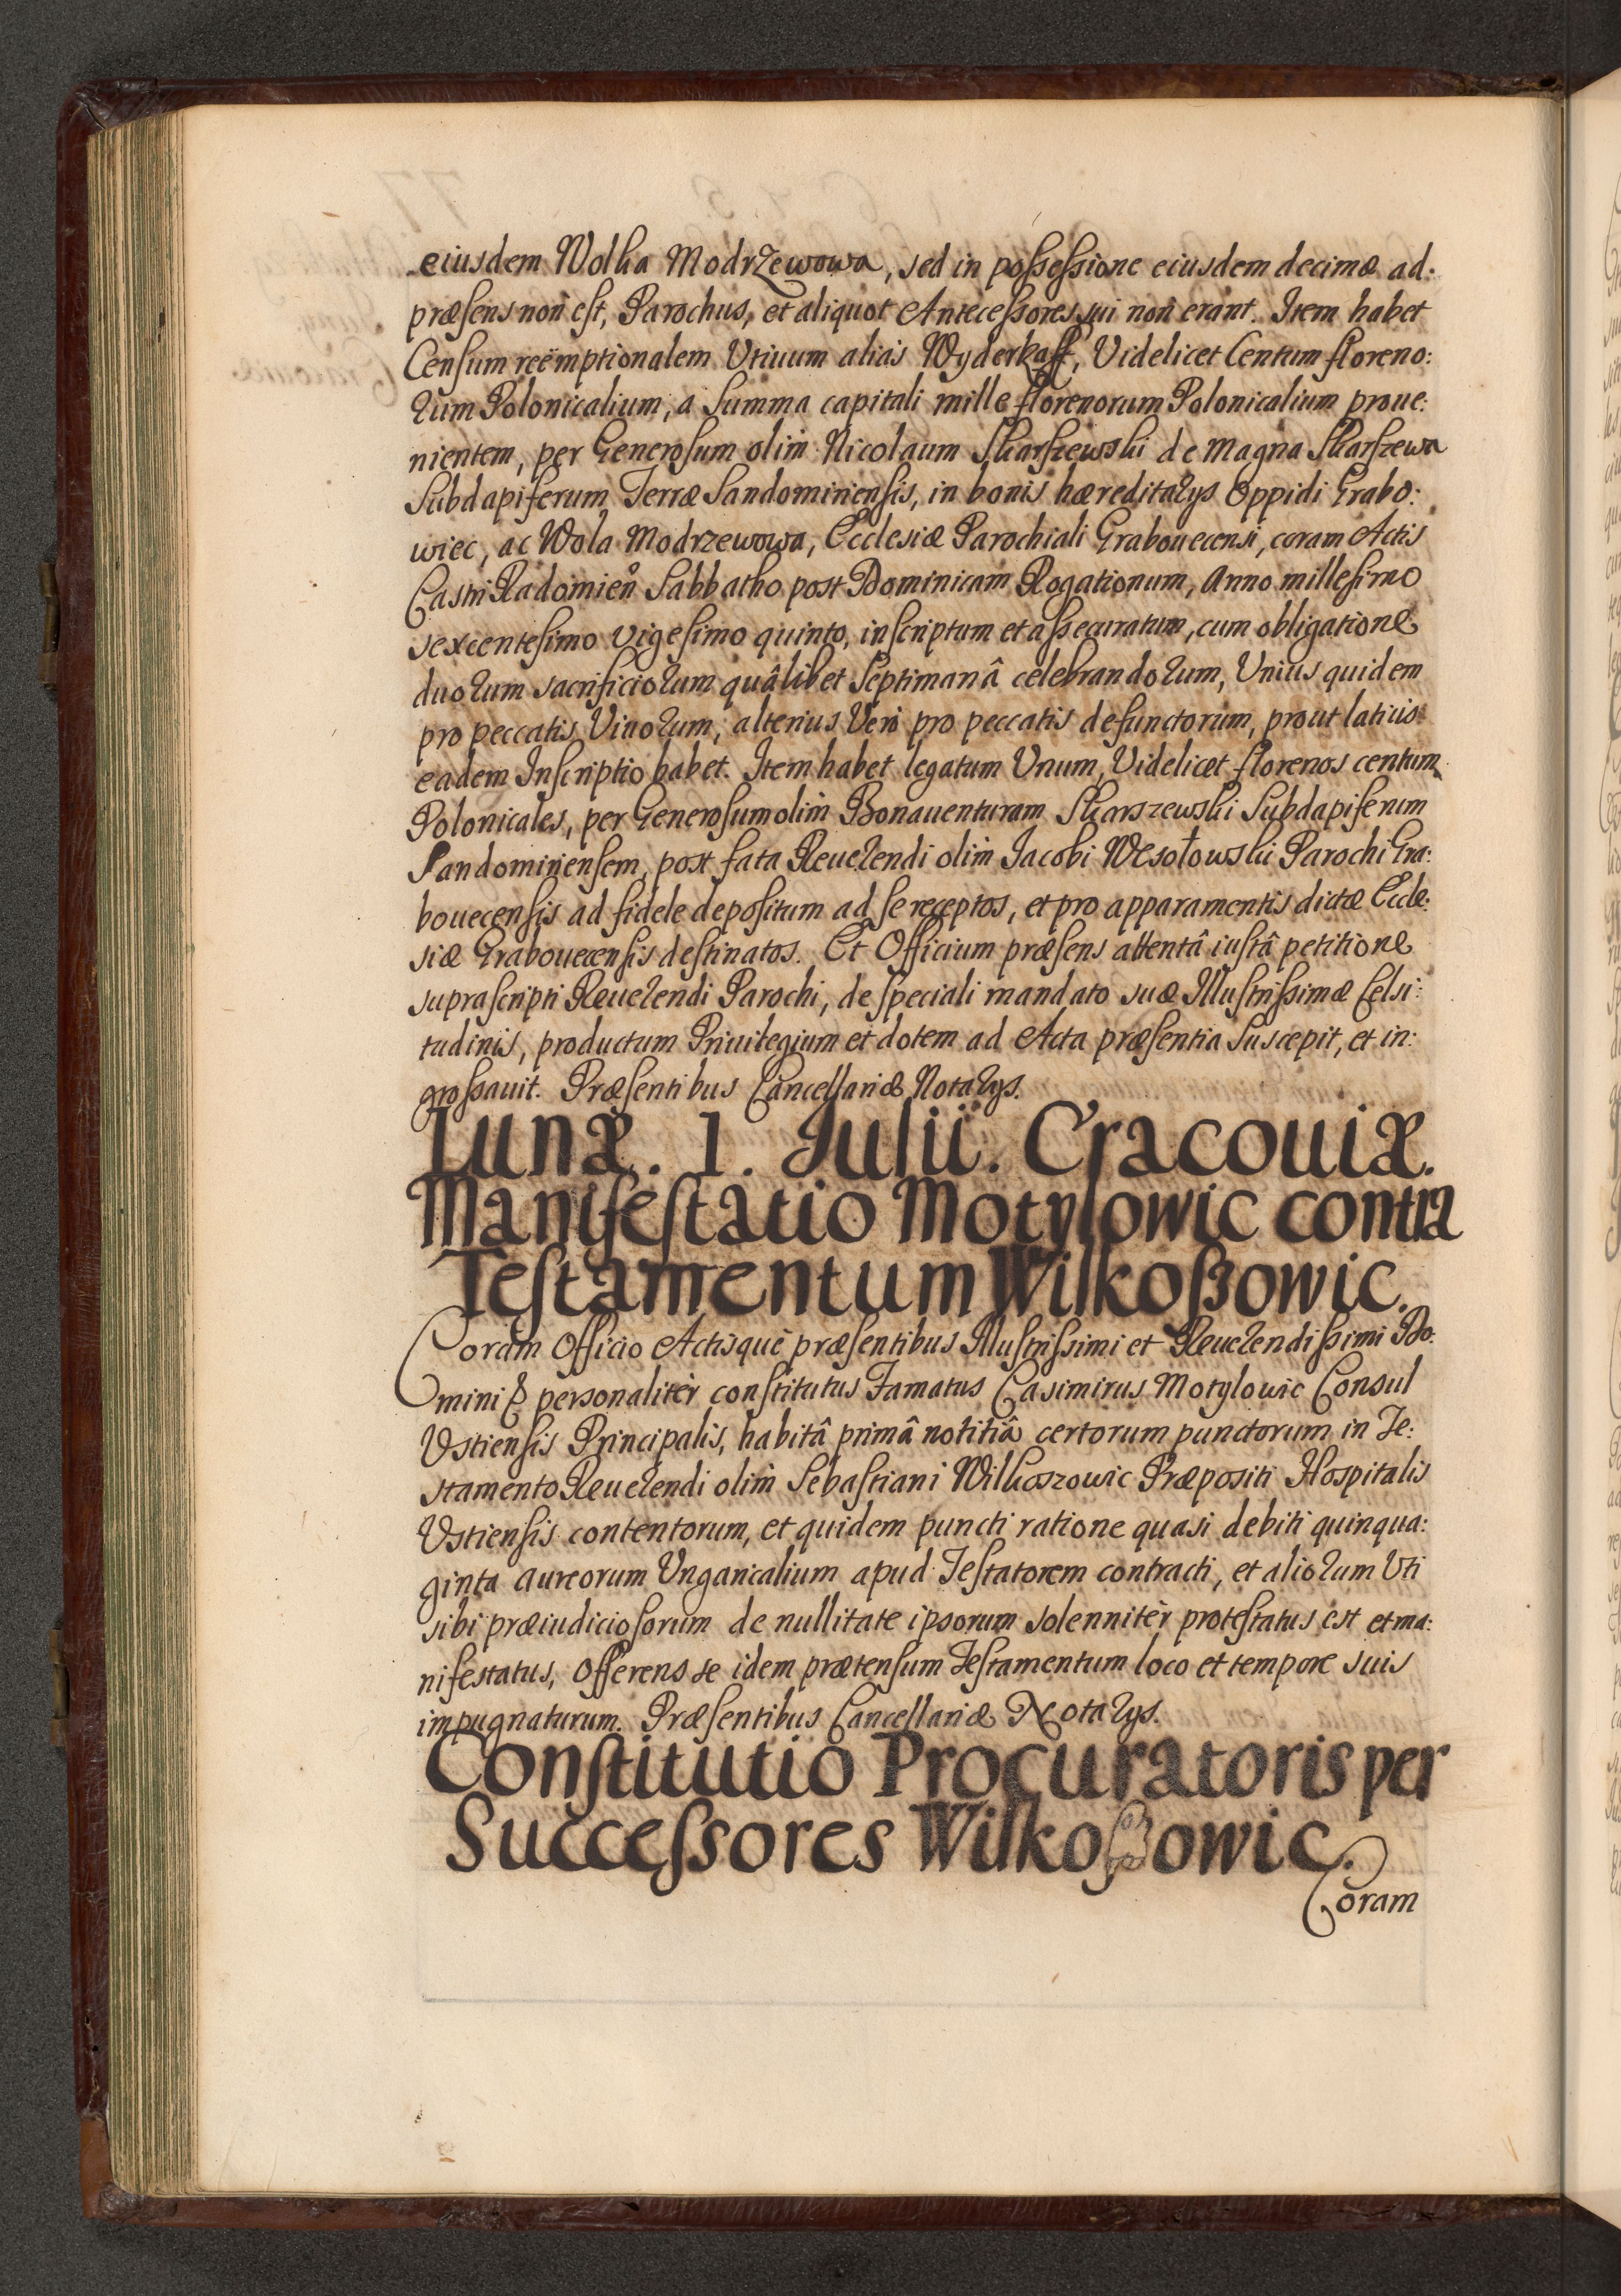 eiusdem Wolka Modrzewowa, sed in possessione eiusdem decimæ ad:
præsens non est, Parochus, et aliquot Antecessores sui non erant. Item habet
Censum reëmptionalem Vtiuum aliàs Wyderkaff, Videlicet Centum floreno:
rum Polonicalium, a Summa capitali mille florenorum Polonicalium proue:
nientem, per Generosum olim Nicolaum Skarszewski de Magna Skarszewa
Subdapiferum Terræ Sandomiriensis, in bonis hæreditarys Oppidi Grabo:
wiec, ac Wola Modrzewowa, Ecclesiæ Parochiali Grabouecensi, coram Actis
Castri Radomien Sabbatho post Dominicam Rogationum, Anno millesimo
sexcentesimo vigesimo quinto, inscriptum et assecuratum, cum obligatione
duorum sacrificiorum quâlibet Septimanâ celebrandorum, Vnius quidem
pro peccatis Viuorum, alterius Verò pro peccatis defunctorum, prout latius
eadem Inscriptio habet. Item habet legatum Vnum, Videlicet florenos centum
Polonicales, per Generosum olim Bonauenturam Skarszewski Subdapiferum
Sandomiriensem, post fata Reuerendi olim Jacobi Wesołowski Parochi Gra:
bouecensis ad fidele depositum ad se receptos, et pro apparamentis dictæ Eccle:
siæ Grabouecensis destinatos. Et Officium præsens attentâ iustâ petitione
suprascripti Reuerendi Parochi, de speciali mandato suæ Illustrissimæ Celsi:
tudinis, productum Priuilegium et dotem ad Acta præsentia suscepit, et in:
grossauit. Præsentibus Cancellariæ Notarys.
Lunæ. 1. Julii. Cracouiæ.
Manifestatio Motylowic contra
Testamentum Wilkoßowic.
Coram Officio Actisque præsentibus Illustrissimi et Reuerendissimi Do:
mini & personalitèr constitutus Famatus Casimirus Motylowic Consul
Vstiensis Principalis, habitâ primâ notitiâ certorum punctorum in Te:
stamento Reuerendi olim Sebastiani Wilkoszowic Præpositi Hospitalis
Vstiensis contentorum, et quidem puncti ratione quasi debiti quinqua:
ginta aureorum Vngaricalium apud Testatorem contracti, et aliorum Vti
sibi præiudiciosorum de nullitate ipsorum solennitèr protestatus est et ma:
nifestatus, offerens se idem prætensum Testamentum loco et tempore suis
impugnaturum. Præsentibus Cancellariæ Notarys.
Constitutio Procuratoris per
Successores Wilkoßowic.
Coram